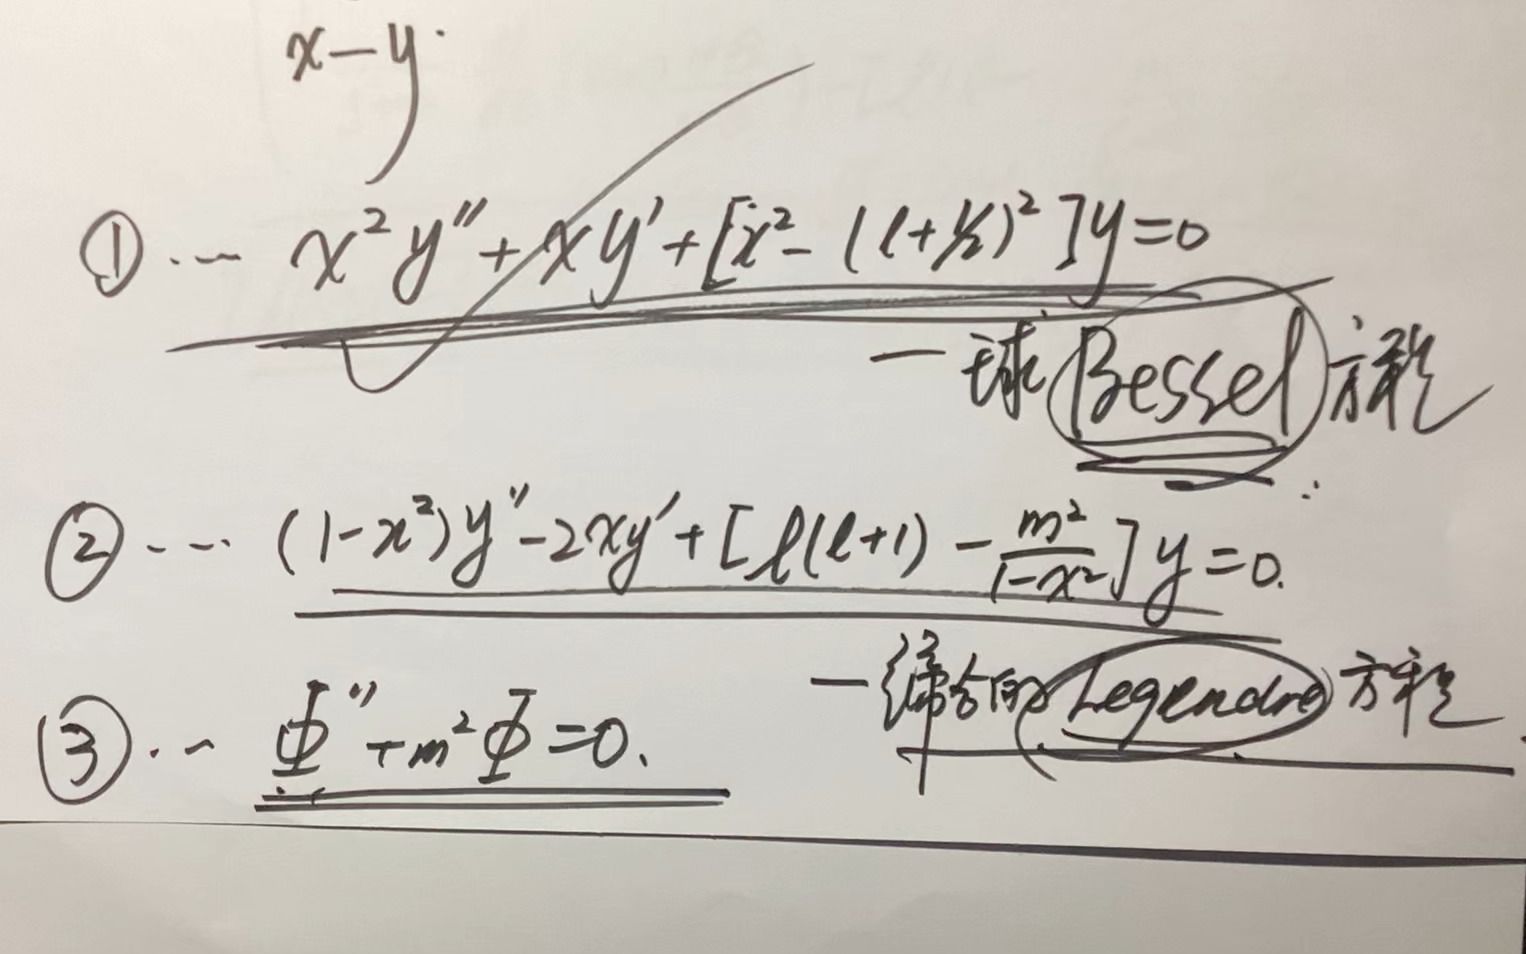 x-y.
① ... x²y″+xy′+[x²-(l+½)²]y=0
—球Bessel方程
② ... (1-x²)y″-2xy′+[l(l+1)-m²/(1-x²)]y=0.
—缔合的Legendre方程
③ ... Φ″+m²Φ=0.